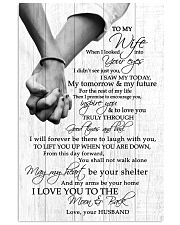 TO MY
Wife
When I looked into
Your eyes
I didn't see just you,
I SAW MY TODAY,
My tomorrow & my future
For the rest of my life
Then I promise to encourage you,
inspire you
& to love you
TRULY THROUGH
Good times and bad.
I will forever be there to laugh with you,
TO LIFT YOU UP WHEN YOU ARE DOWN,
From this day forward,
You shall not walk alone
May my heart be your shelter
And my arms be your home
I LOVE YOU TO THE
Moon & Back
Love, your HUSBAND